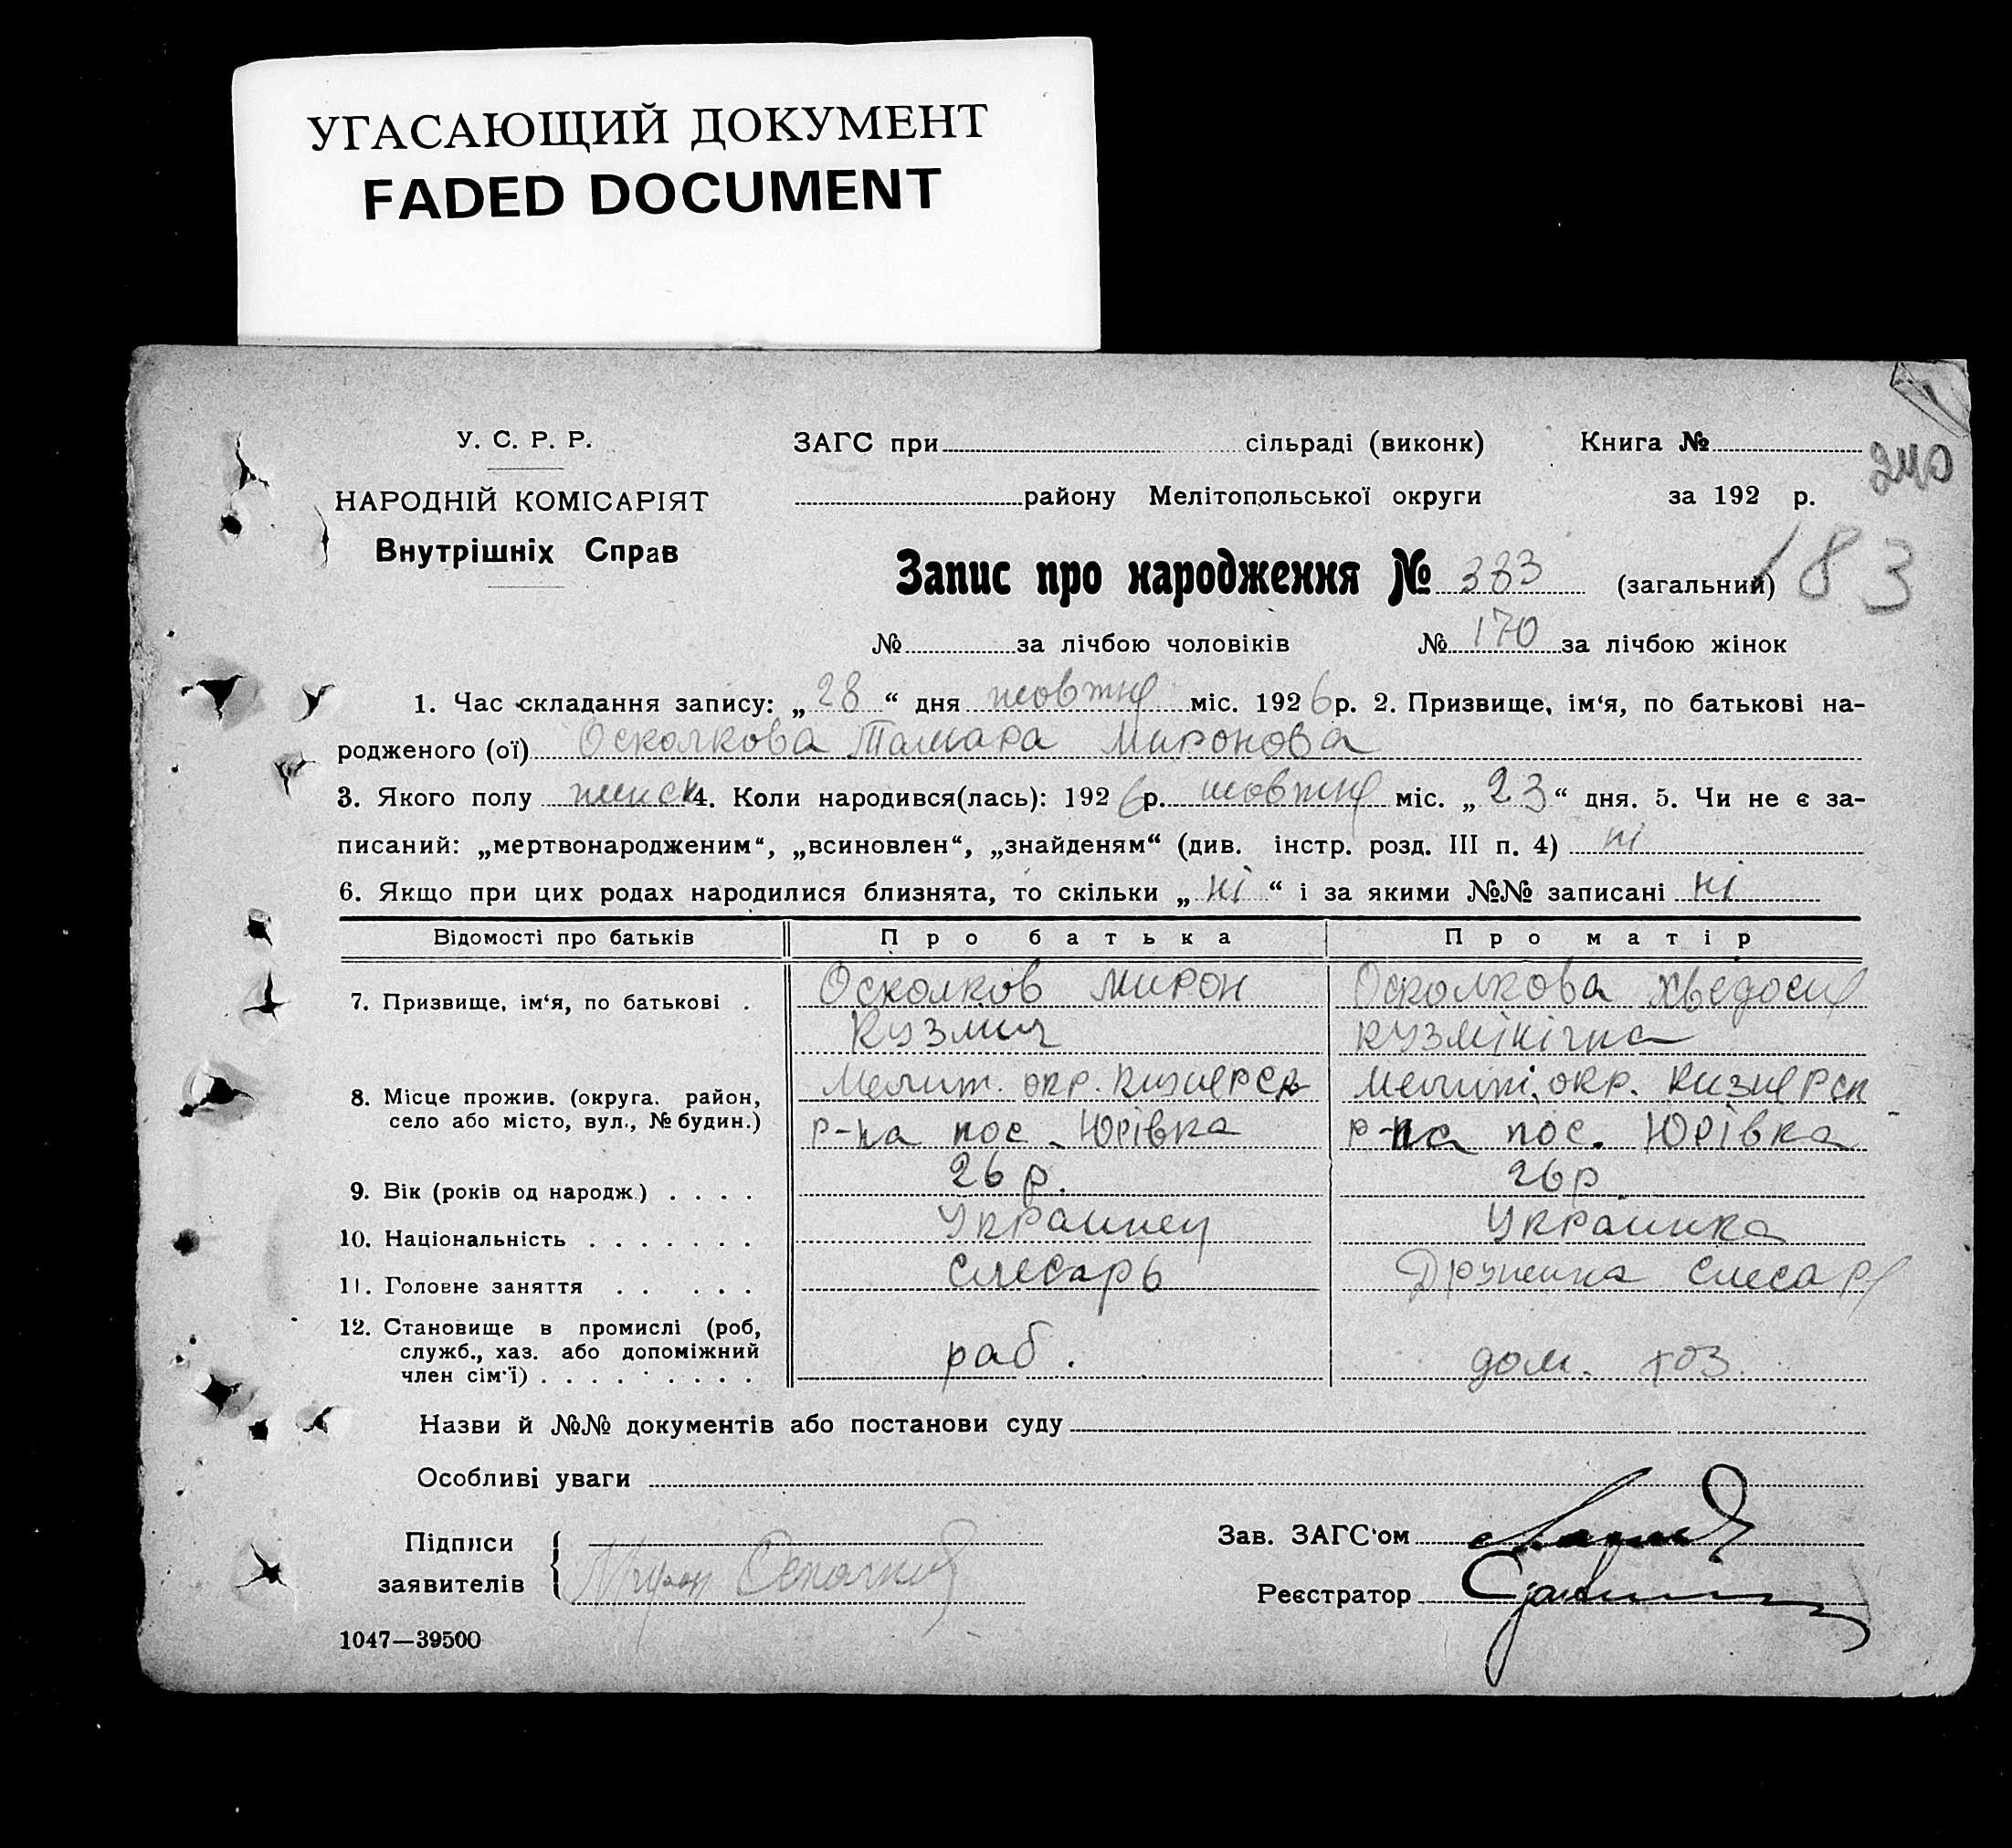 УГАСАЮЩИЙ ДОКУМЕНТ
FADED DOCUMENT
У. С. Р. Р.
НАРОДНІЙ КОМІСАРІЯТ
Внутрішніх Справ
ЗАГС при сільраді (виконк) Книга №
240
району Мелітопольської округи за 192 р.
183
Запис про народження № 383 (загальний)
№ за лічбою чоловіків № 170 за лічбою жінок
1. Час складання запису: „28“ дня жовтня міс. 1926 р. 2. Призвище, ім'я, по батькові на-
родженого (ої) Осколкова Тамара Миронова
3. Якого полу жинск 4. Коли народився(лась): 1926 р. жовтня міс. „23“ дня. 5. Чи не є за-
писаний: „мертвонародженим“, „всиновлен“, „знайденям“ (див. інстр. розд. III п. 4) ні
6. Якщо при цих родах народилися близнята, то скільки „ні“ і за якими №№ записані ні
Відомості про батьків Про батька Про матір
7. Призвище, ім'я, по батькові . Осколков Мирон Осколкова Хведосия
Кузмич Кузмінічна
8. Місце прожив. (округа. район, Мелит. окр. Кизиерск Мелит. окр. Кизиерск
село або місто, вул., № будин.) р-на пос. Юрівка р-на пос. Юрівка
9. Вік (років од народж.) . . . . 26 р. 26 р
10. Національність . . . . . . . Украинец Украинка
11. Головне заняття . . . . . Слесарь Друженка Слесаря
12. Становище в промислі (роб,
служб., хаз. або допоміжний раб. дом. хоз.
член сім'ї) . . . . . . . . .
Назви й №№ документів або постанови суду
Особливі уваги
Підписи
заявителів Мирон Осколков
Зав. ЗАГС'ом
Реєстратор
1047—39500